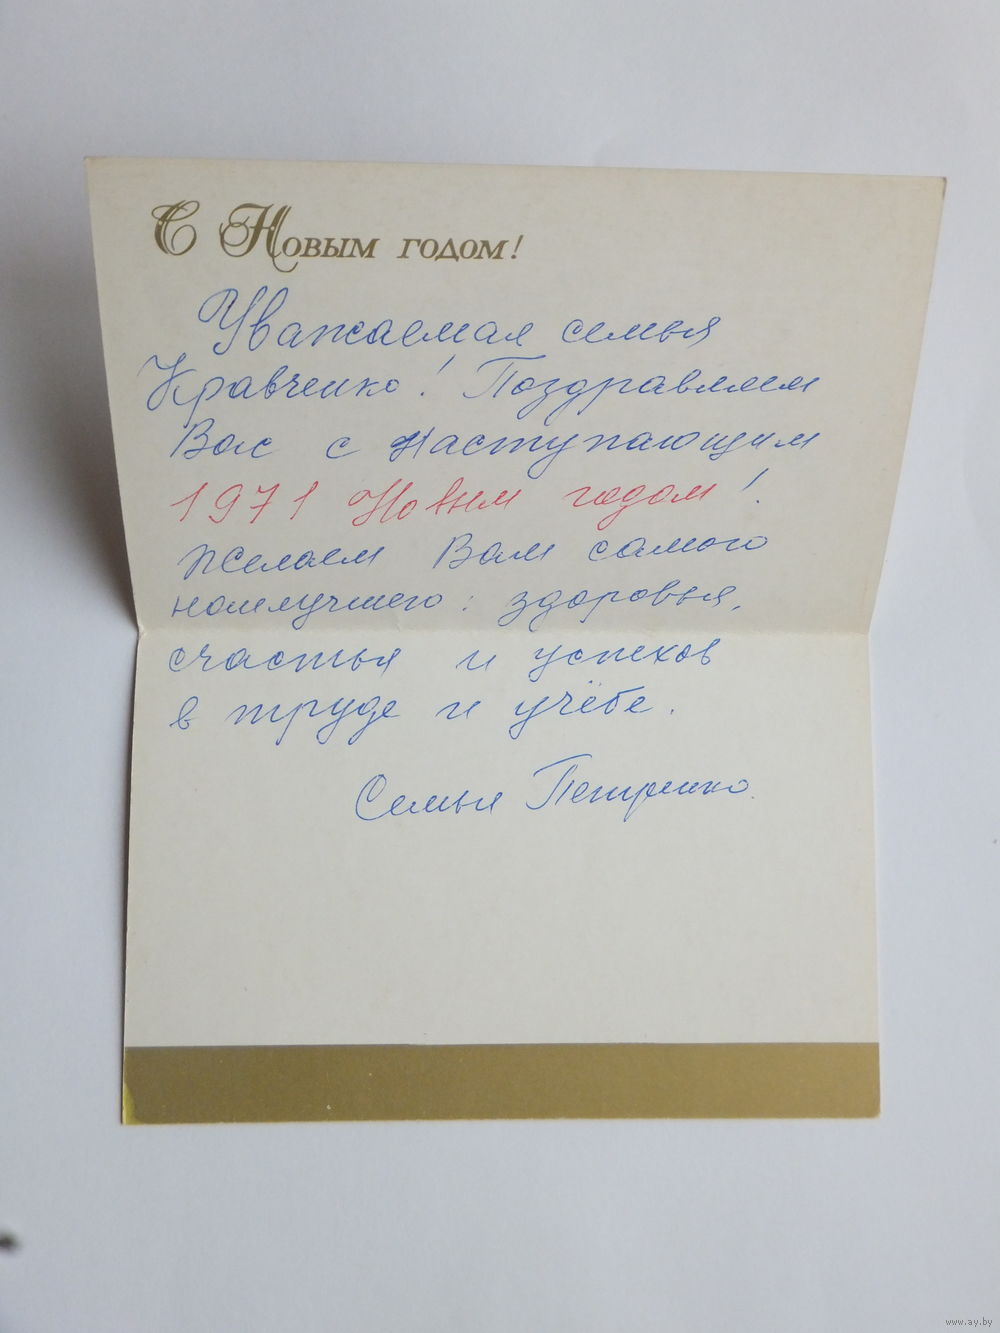 С Новым годом!
Уважаемая семья
Кравченко! Поздравляем
Вас с наступающим
1971 Новым годом!
Желаем Вам самого
наилучшего: здоровья,
счастья и успехов
в труде и учёбе.
Семья Петренко.
www.ay.by